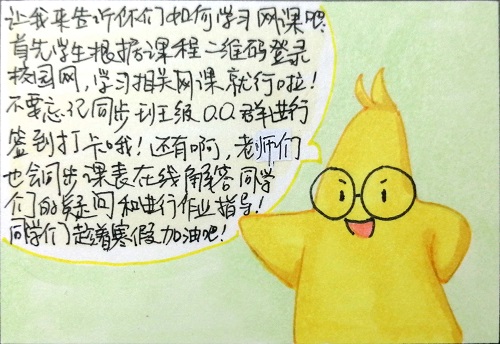 让我来告诉你们如何学习网课吧
首先学生根据课程二维码登录
校园网，学习相关网课就行啦！
不要忘记同步班级QQ群进行
签到打卡哦！还有啊，老师们
也会同步课表在线解答同学
们的疑问和进行作业指导！
同学们趁着寒假加油吧！